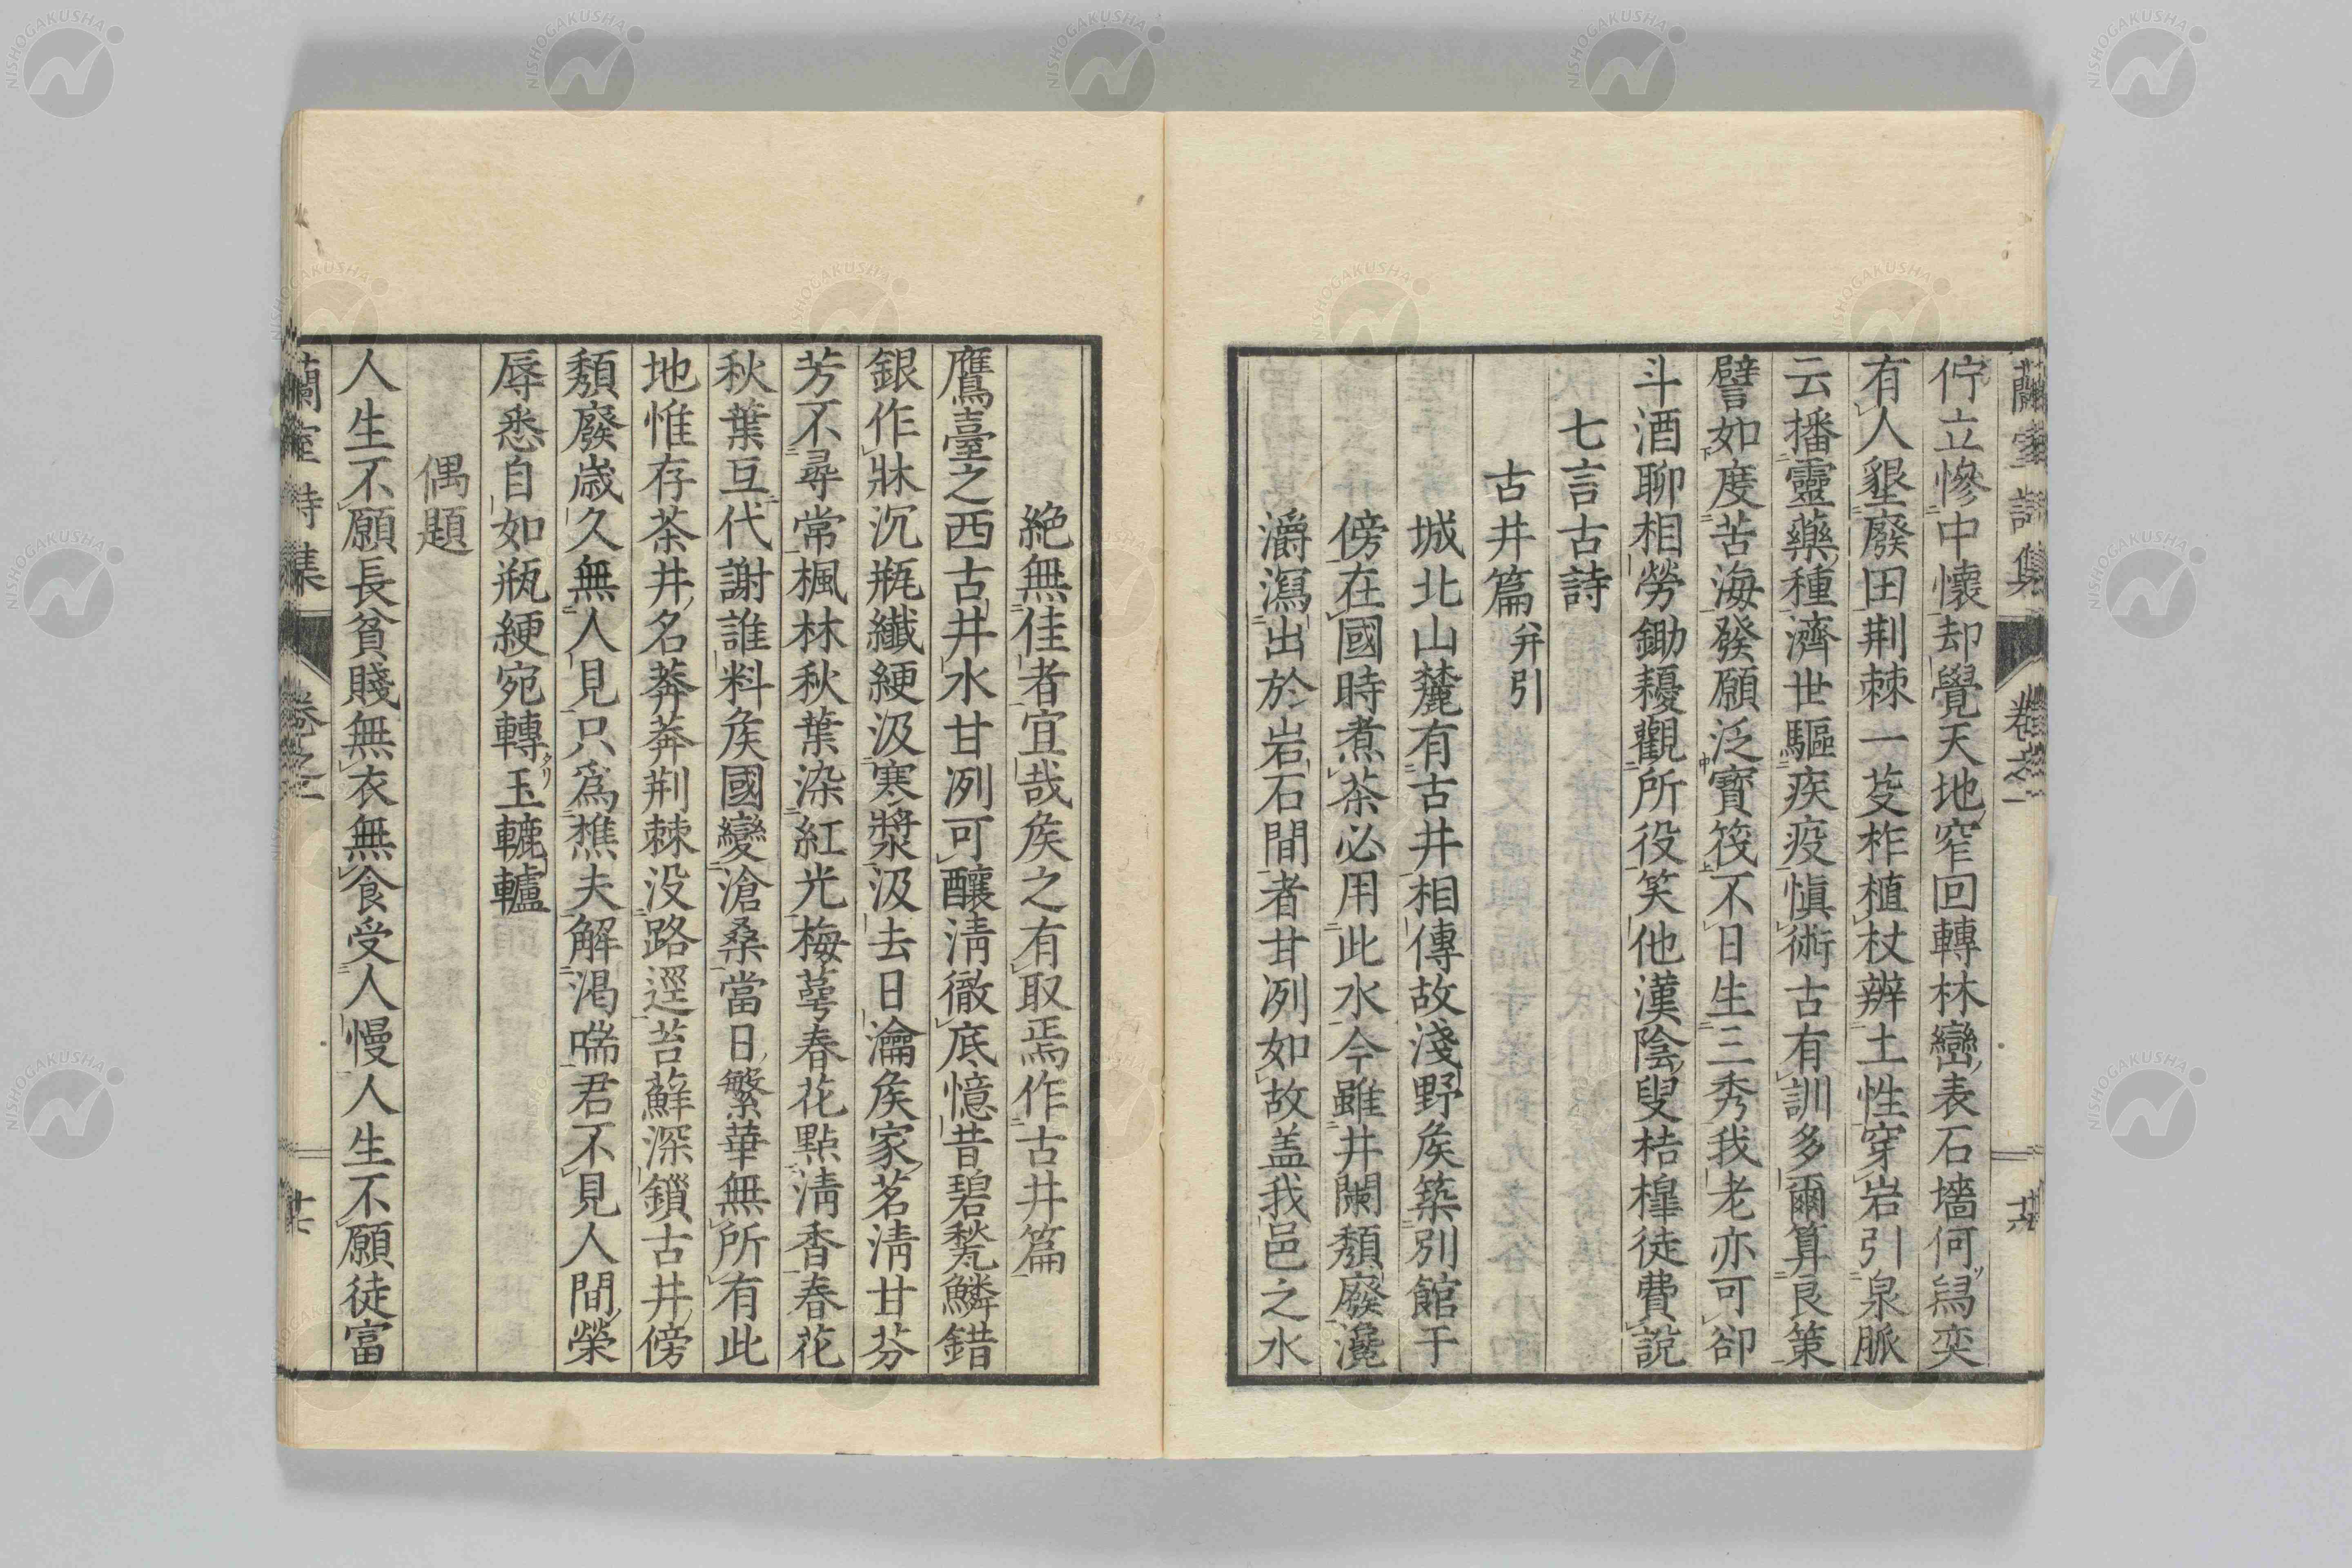 蘭室詩集 卷之一 廿六
佇立慘中懐却覺天地窄回轉林巒表石墻何舄奕
有人墾廢田荆棘一芟柞植杖辨土性穿岩引泉脈
云播靈藥種濟世驅疾疫愼術古有訓多爾算良策
譬如度苦海發願泛寳筏不日生三秀我老亦可卻
斗酒聊相勞鋤耰觀所役笑他漢陰叟桔槹徒費說
七言古詩
古井篇 并引
城北山麓有古井相傳故淺野矦築別館于
傍在國時煮茶必用此水今雖井闌頽廢瀺
灂瀉出於岩石間者甘冽如故盖我邑之水
絶無佳者宜哉矦之有取焉作古井篇
鷹臺之西古井水甘冽可釀淸徹底憶昔碧甃鱗錯
銀作牀沉瓶纖綆汲寒漿汲去日瀹矦家茗淸甘芬
芳不尋常楓林秋葉染紅光梅萼春花點淸香春花
秋葉互代謝誰料矦國變滄桑當日繁華無所有此
地惟存茶井名莾莾荆棘没路逕苔蘚深鎖古井傍
頽廢歳久無人見只爲樵夫解渇喘君不見人間榮
辱悉自如瓶綆宛轉クリ玉轆轤
偶題
人生不願長貧賤無衣無食受人慢人生不願徒富
蘭室詩集 卷之一